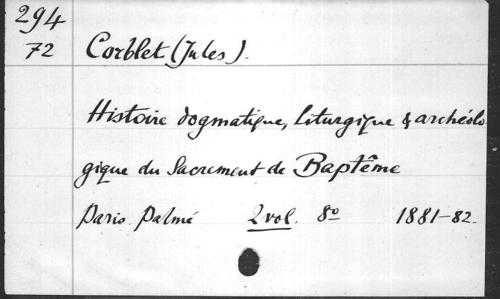 294
72 Corblet (Jules).
Histoire dogmatique, liturgique & archéolo
gique du Sacrement de Baptême
Paris Palmé 2 vol. 8º 1881-82.